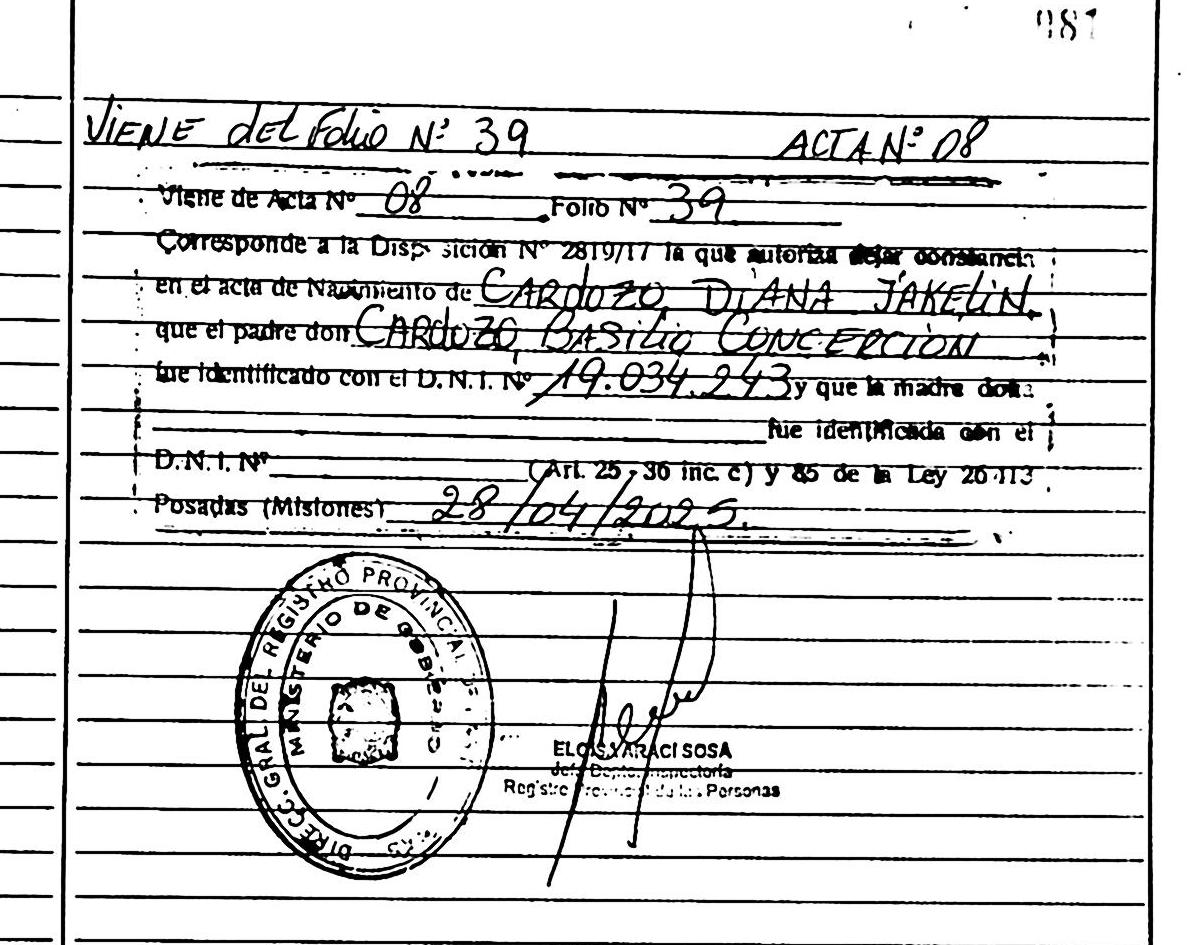 VIENE del Folio Nº 39 ACTA Nº 08
Viene de Acta Nº 08 Folio Nº 39
Corresponde a la Disposición Nº 2819/17 la que autoriza dejar constancia
en el acta de Nacimiento de CARDOZO, DIANA JAKELIN.
que el padre don CARDOZO, BASILIO CONCEPCION
fue identificado con el D.N.I. Nº 19.034.243 y que la madre doña
fue identificada con el
D.N.I. Nº (Art. 25 - 36 inc. c) y 85 de la Ley 26.413
Posadas (Misiones) 28/04/2025.
DIRECC. GRAL. DEL REGISTRO PROVINCIAL DE LAS
MINISTERIO DE GOBIERNO
SOSA
Jefe Depto. Inspectoría
Registro Provincial de las Personas